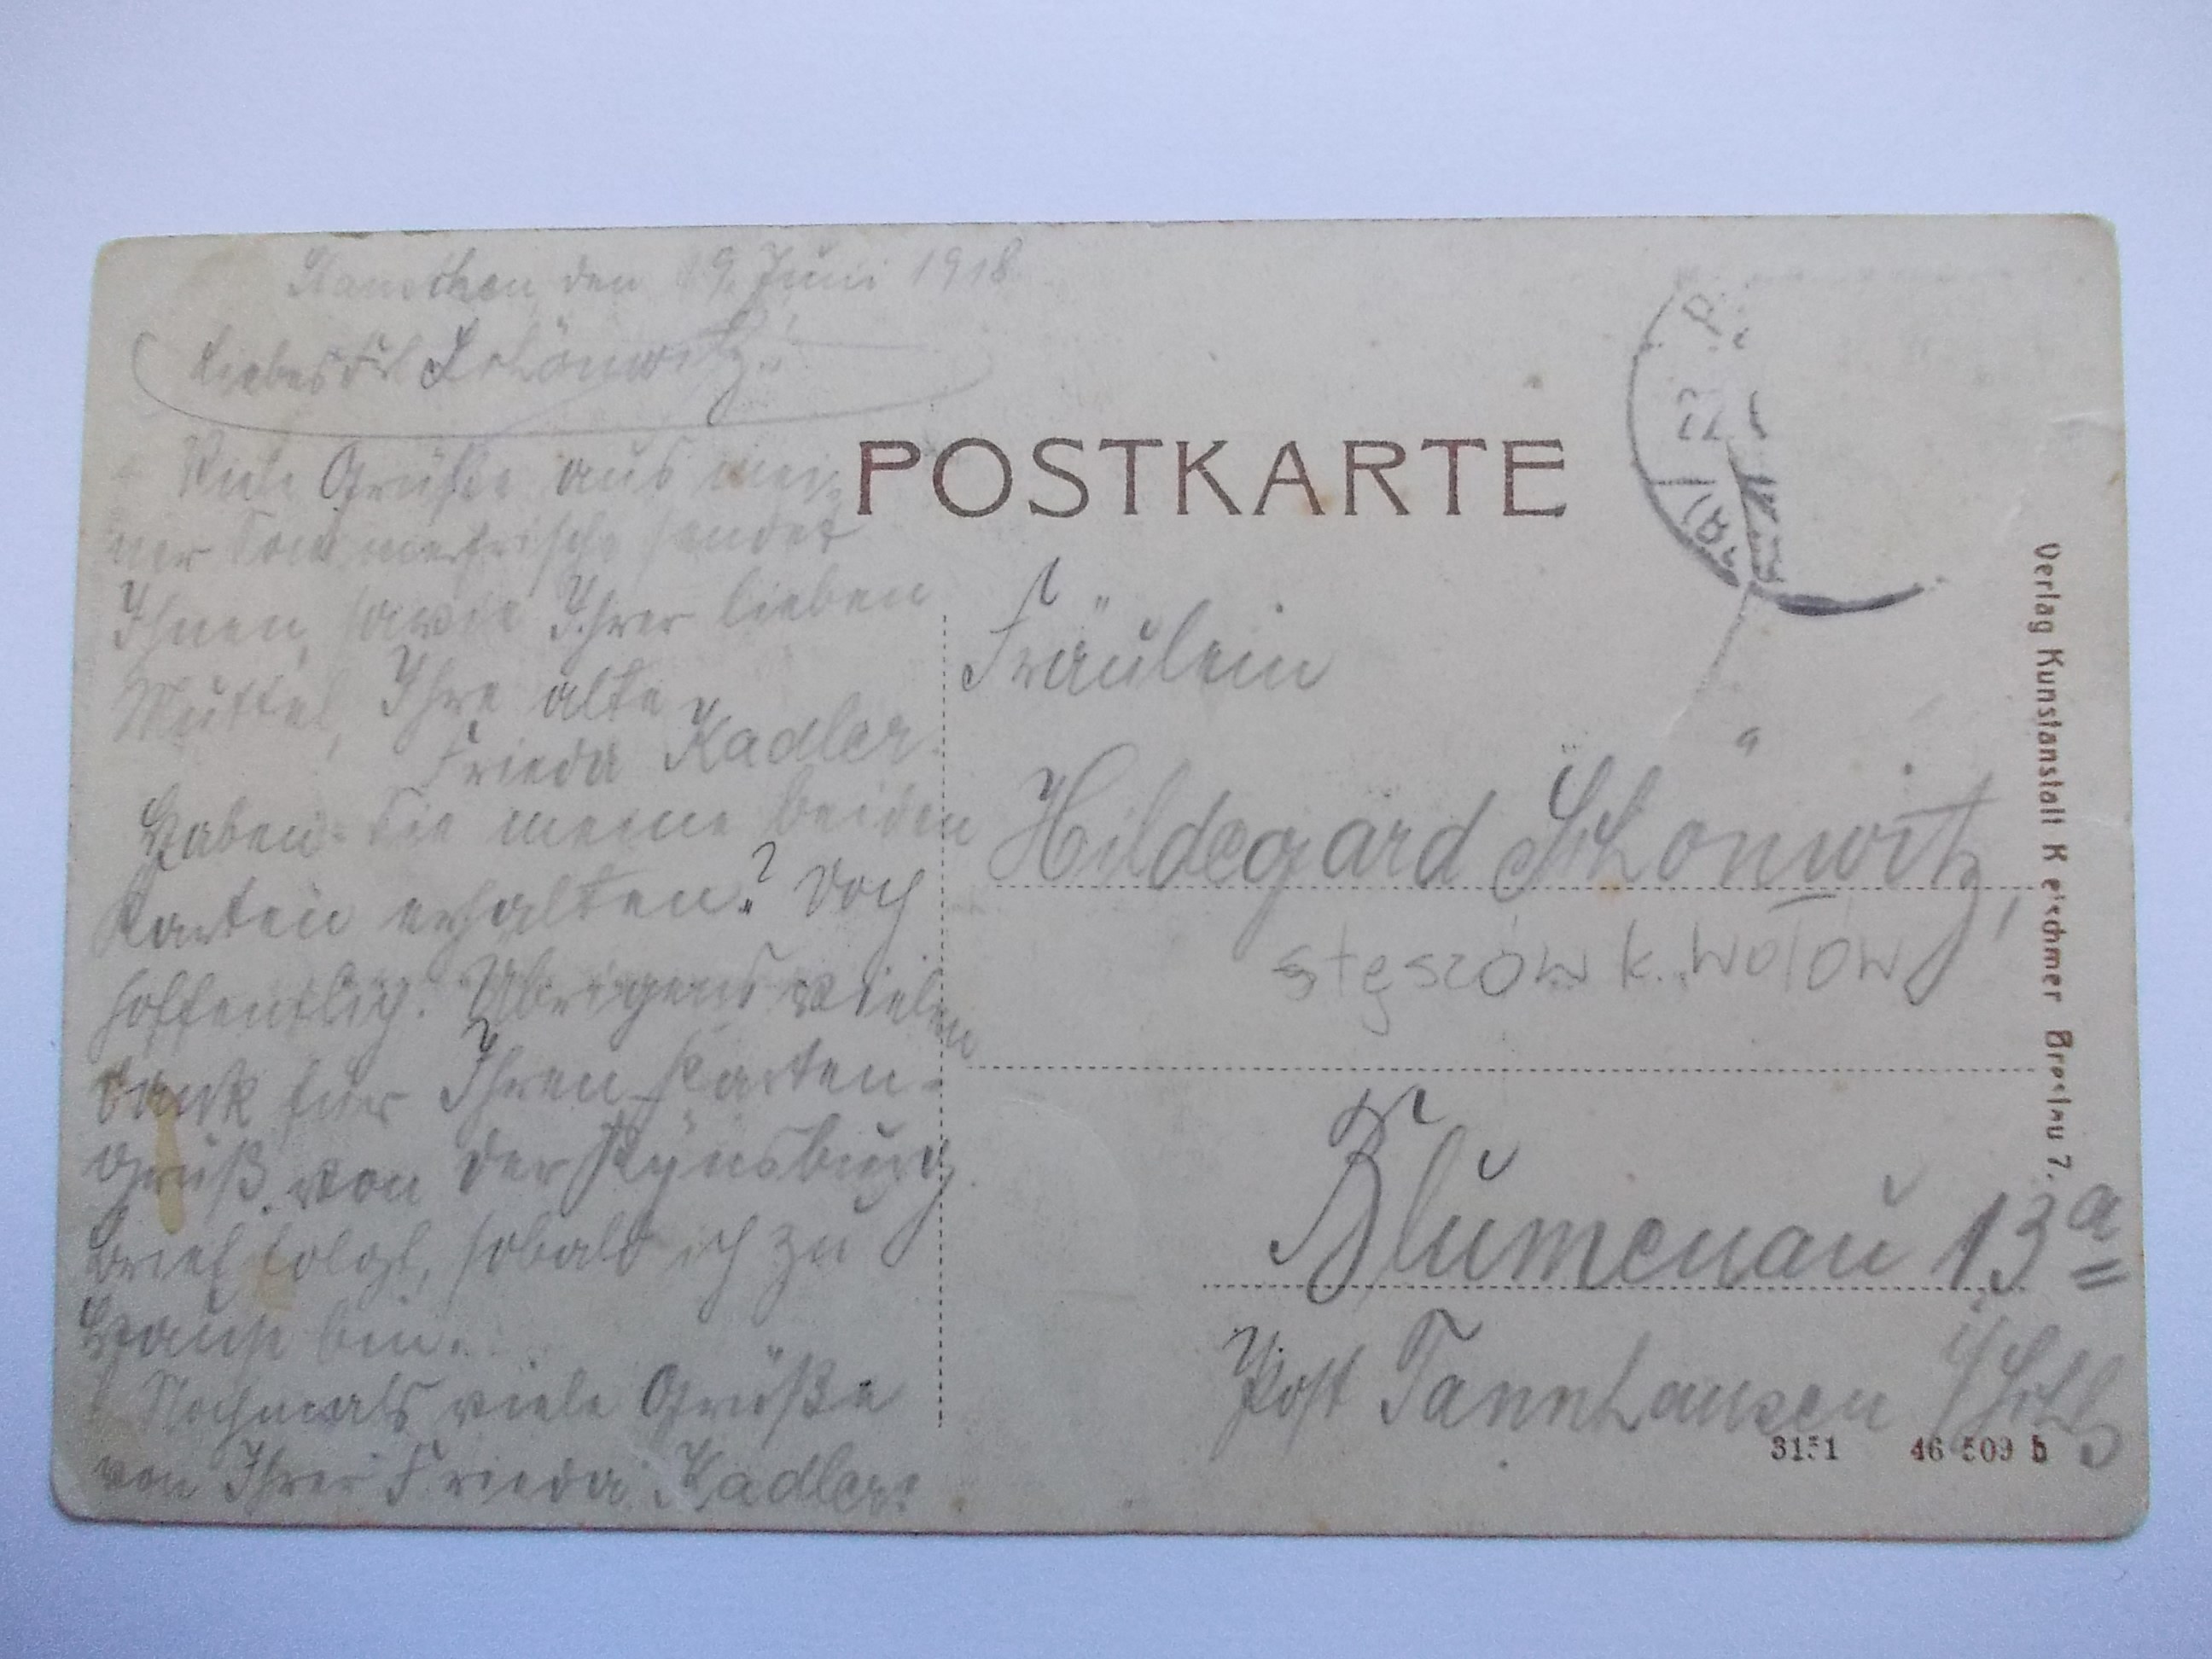 den 19. Juni 1918
Liebes Frl Schönwitz!
Viele Grüße aus mei-
ner Sommerfrische sendet
Ihnen, sowie Ihrer lieben
Muttel, Ihre alte
Frieda Kadler.
Haben Sie meine beiden
Karten erhalten? Doch
hoffentlich. Übrigens vielen
Dank für Ihren Karten-
gruß von der Kynsburg.
Brief folgt, sobald ich zu
Hause bin.
Nochmals viele Grüße
von Ihrer Frieda Kadler.
POSTKARTE
Fräulein
Hildegard Schönwitz,
stęszów k. Wołów
Blumenau 13a
Post Tannhausen i/Schls
3151 46 509 b
Verlag Kunstanstalt Keischmer Breslau 7.